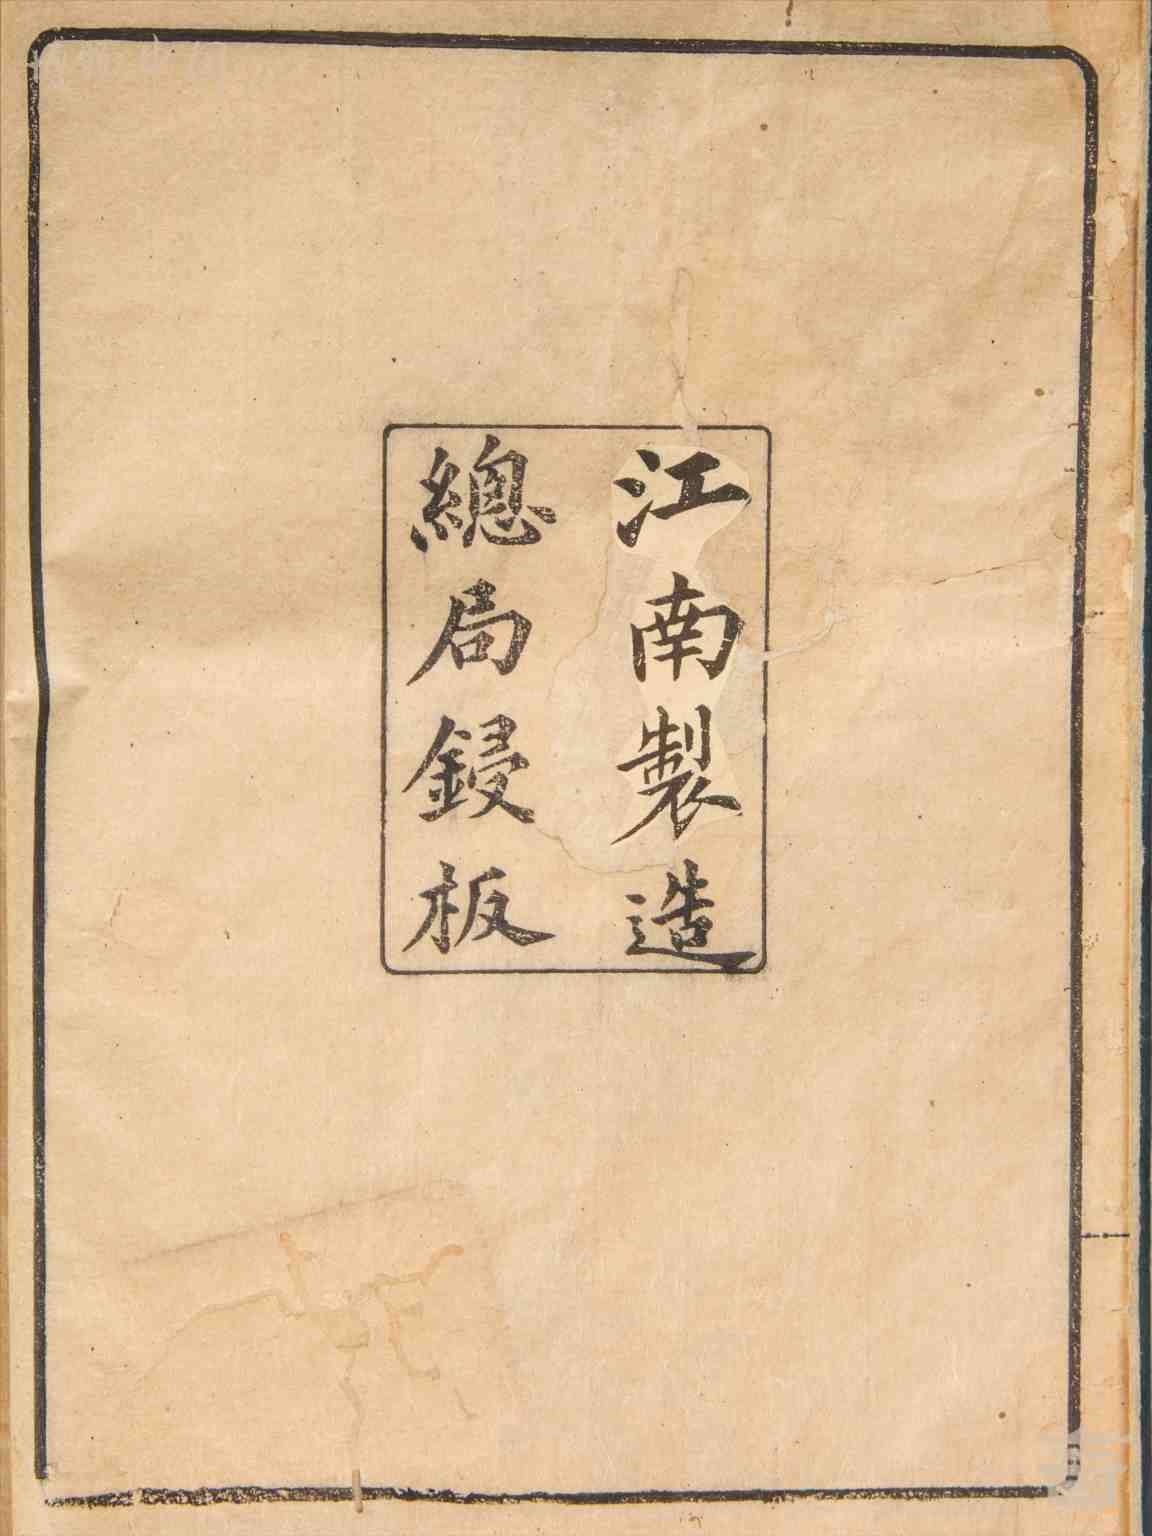 江南製造
總局鋟板